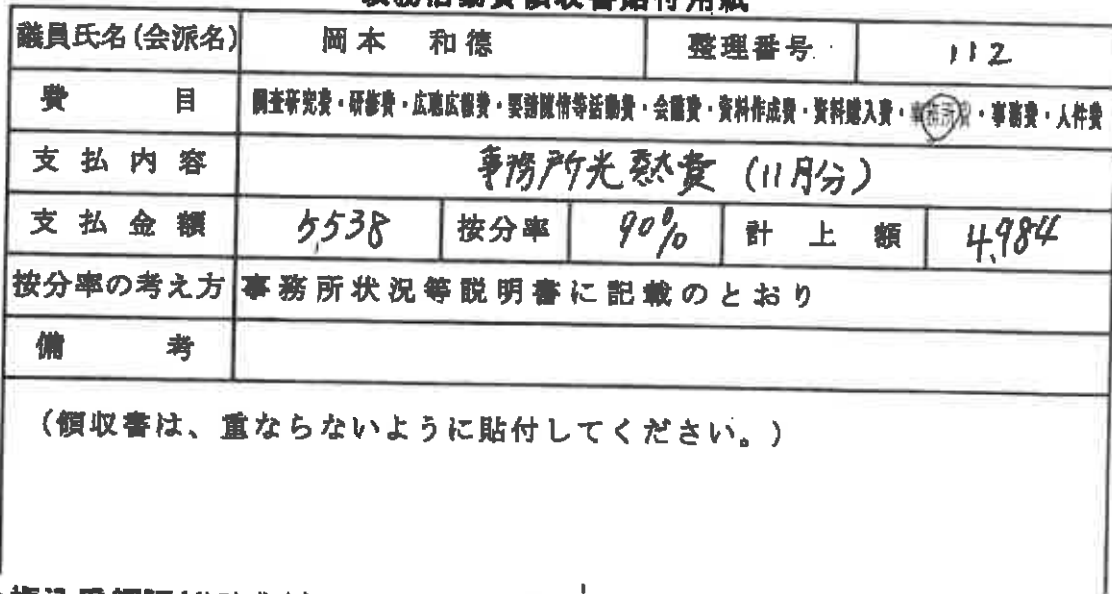 議員氏名(会派名) 岡本 和德 整理番号 112
費目 調査研究費・研修費・広聴広報費・要請陳情等活動費・会議費・資料作成費・資料購入費・事務所費・事務費・人件費
支払内容 事務所光熱費 (11月分)
支払金額 5,538 按分率 90% 計上額 4,984
按分率の考え方 事務所状況等説明書に記載のとおり
備考
(領収書は、重ならないように貼付してください。)